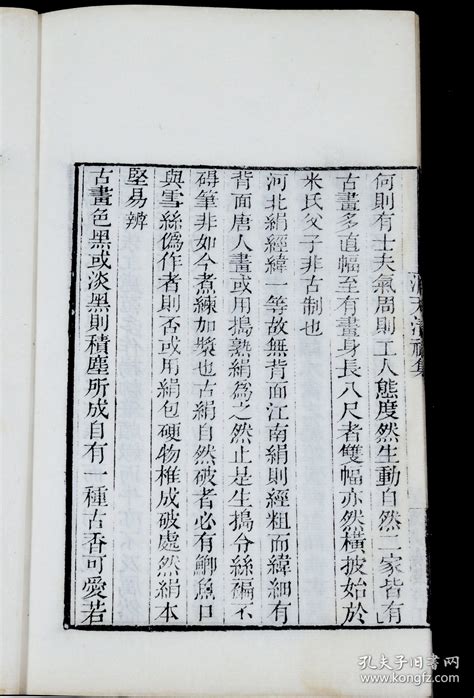 洞天清祿集
何則有士夫氣周則工人態度然生動自然二家皆有
古畫多直幅至有畫身長八尺者雙幅亦然橫披始於
米氏父子非古制也
河北絹經緯一等故無背面江南絹則經粗而緯細有
背面唐人畫或用搗熟絹為之然止是生搗令絲褊不
礙筆非如今煮練加漿也古絹自然破者必有鯽魚口
與雪絲偽作者則否或用絹包硬物椎成破處然絹本
堅易辨
古畫色黑或淡黑則積塵所成自有一種古香可愛若
孔夫子旧书网
www.kongfz.com